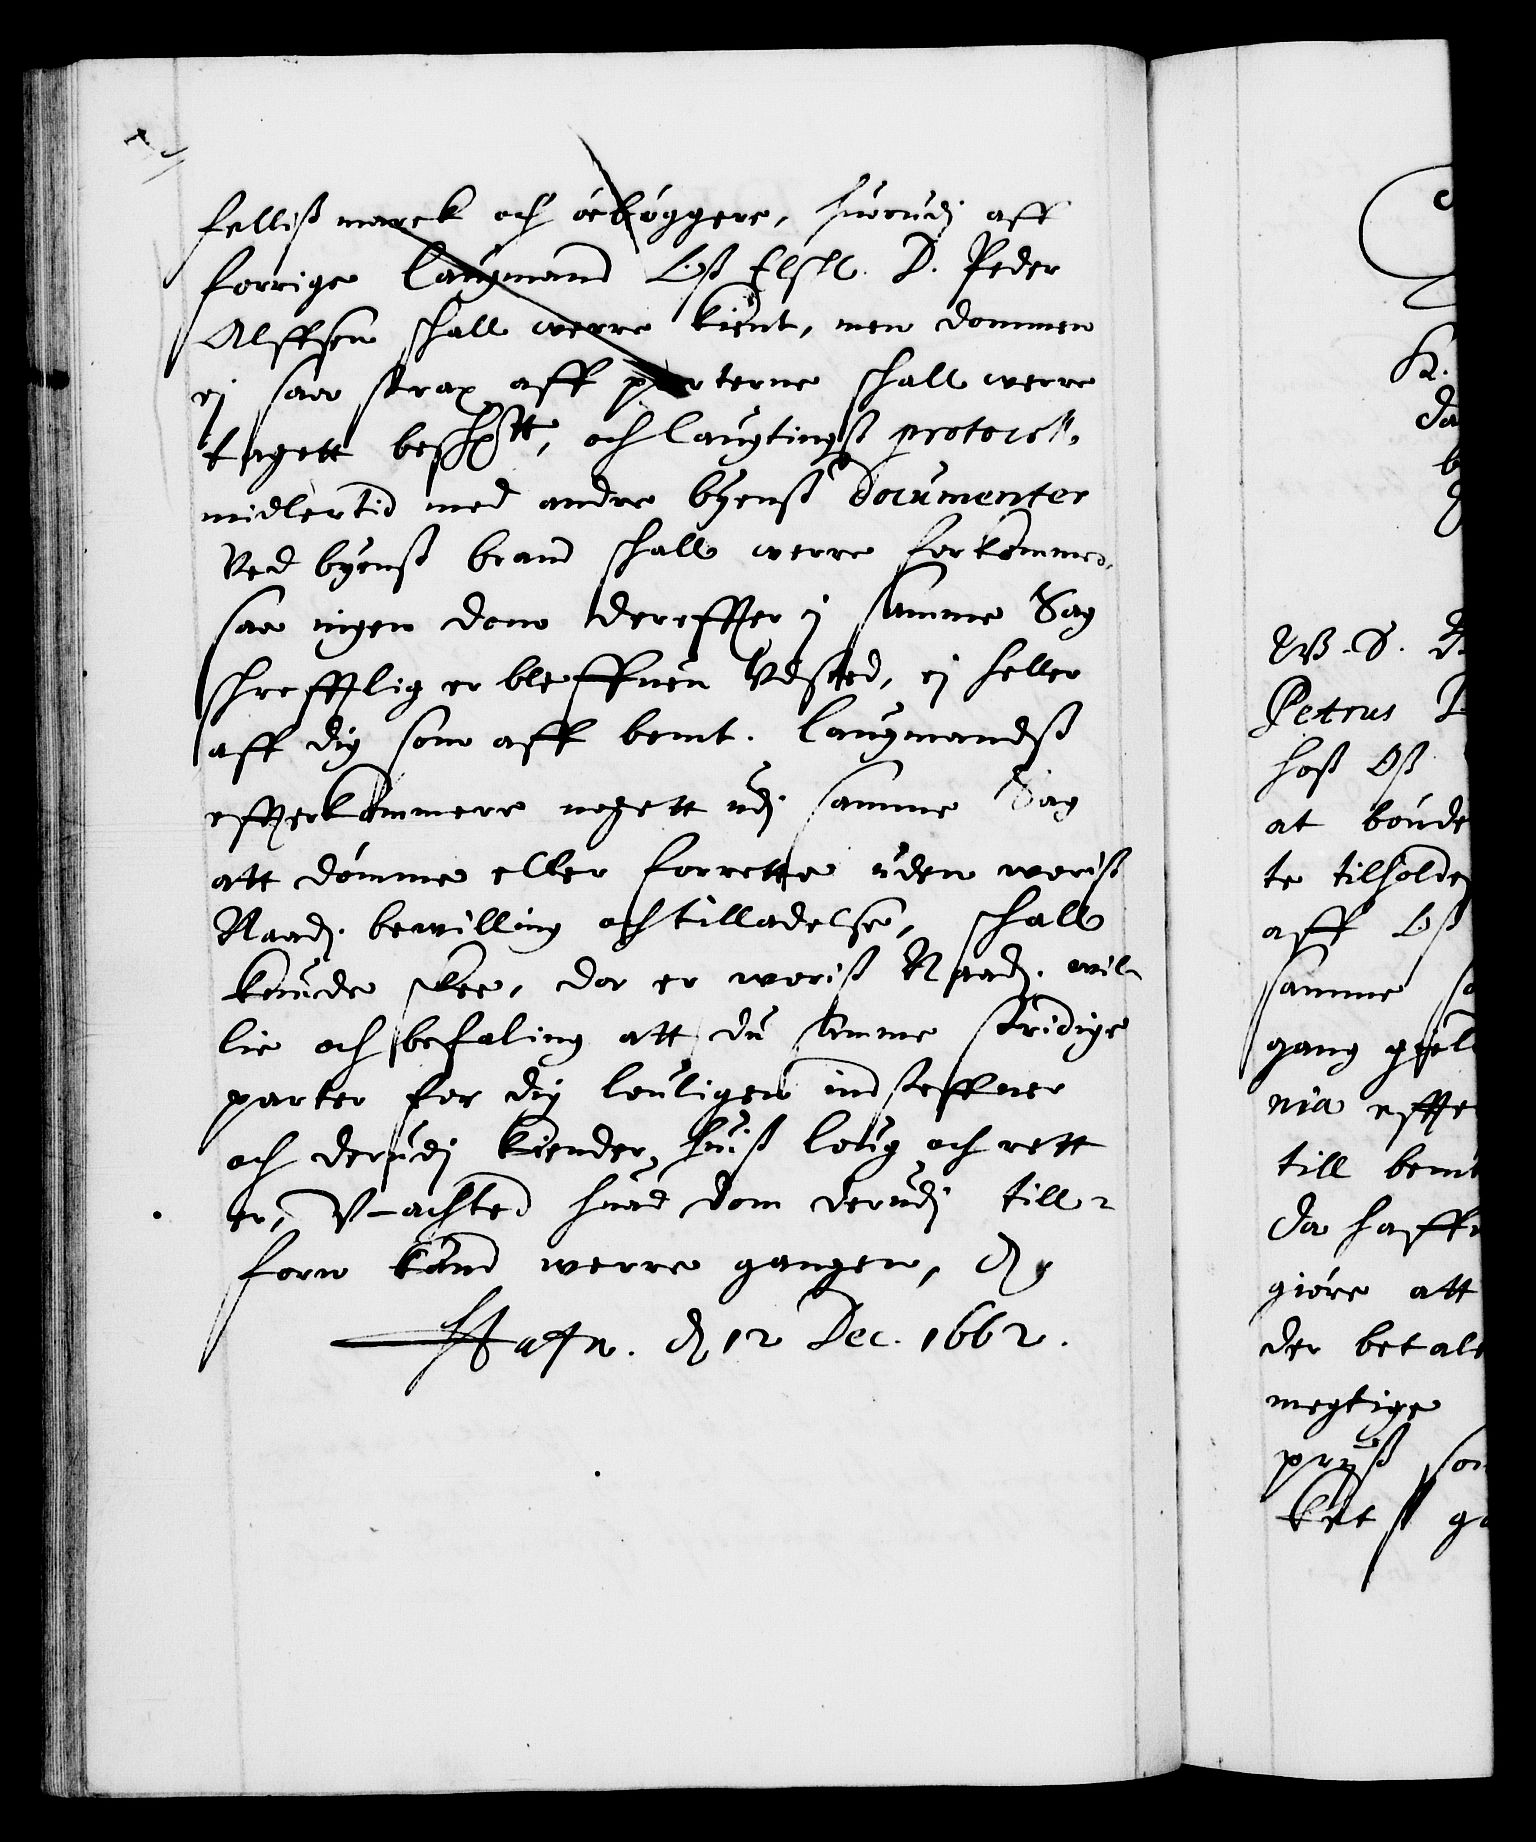 felliß marck och ødbøggere, huorudj aff
forrige Laugmand Oß Elschl. D. Peder
Alffsen schall werre kient, men dommen
ej saa strax aff parterne schall werre
tagett beschr: och laugtingß protocoll,
midlertid med andre byenß Documenter
Ved byenß brand schall werre forkommed,
saa ingen dom dereffter j samme Sag
schrefftlig er bleffuen Vdsted, ej heller
aff dig som aff bemt. Laugmandß
effterkommere nogett udj samme Sag
att dømme eller forrette uden woriß
Naadj. bewilling och tilladelse, schall
kunde skee, Da er woriß Naadj. wil-
lie och befaling att du samme stridige
parter for dig louligen indsteffner
och derudj kiender, huiß loug och rett
er, V-achted huad dom derudj till-
forn kand werre gangen, Dg
Hafn. d 12 Dec. 1662.
K.
da
W. G. 
Petrus
hoß Oß
at bønde
te tilholde
aff Oß
samme so
gang giel
nia effte
till bemt
da haffu
giøre att
der betale
megtige
pryß som